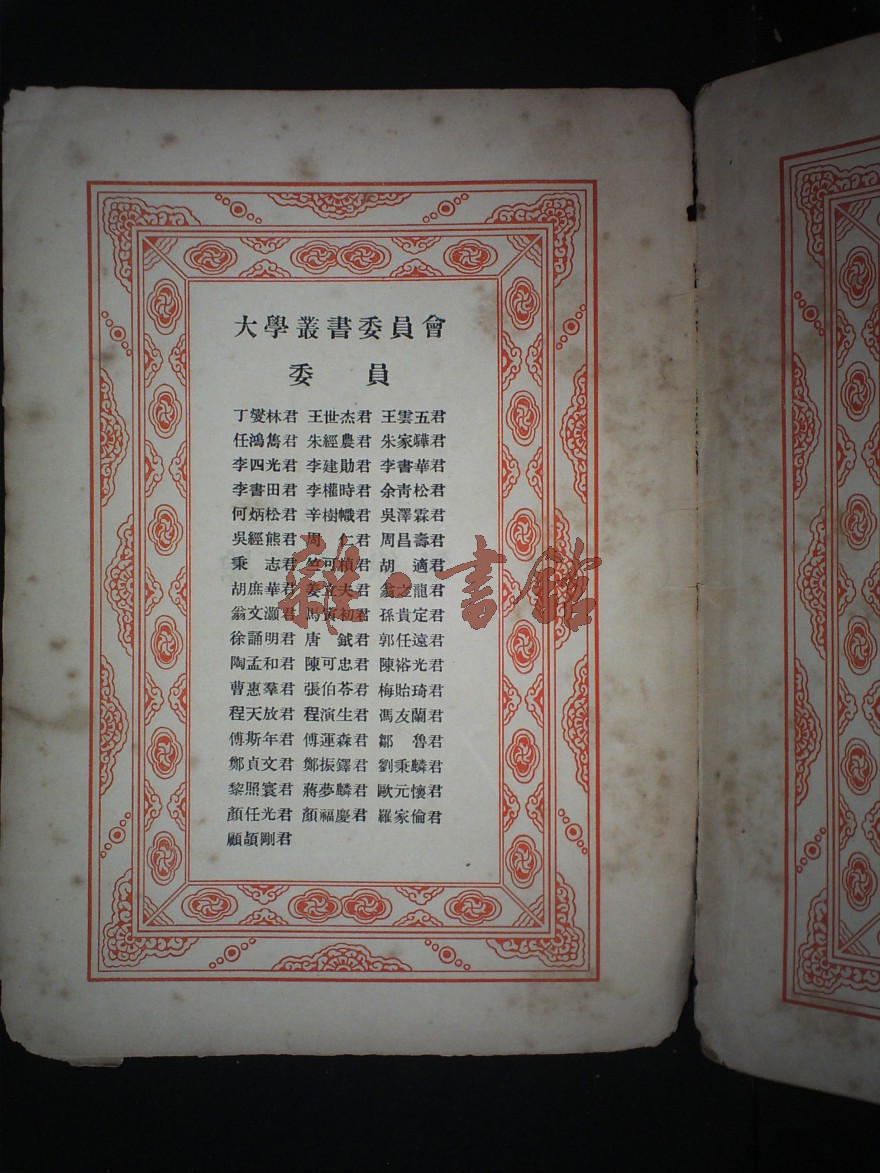 大學叢書委員會
委 員
丁燮林君 王世杰君 王雲五君
任鴻雋君 朱經農君 朱家驊君
李四光君 李建勛君 李書華君
李書田君 李權時君 余青松君
何炳松君 辛樹幟君 吳澤霖君
吳經熊君 周 仁君 周昌壽君
秉 志君 竺可楨君 胡 適君
胡庶華君 姜立夫君 翁之龍君
翁文灝君 馬寅初君 孫貴定君
徐誦明君 唐 鉞君 郭任遠君
陶孟和君 陳可忠君 陳裕光君
曹惠羣君 張伯苓君 梅貽琦君
程天放君 程演生君 馮友蘭君
傅斯年君 傅運森君 鄒 魯君
鄭貞文君 鄭振鐸君 劉秉麟君
黎照寰君 蔣夢麟君 歐元懷君
顏任光君 顏福慶君 羅家倫君
顧頡剛君
雜·書館